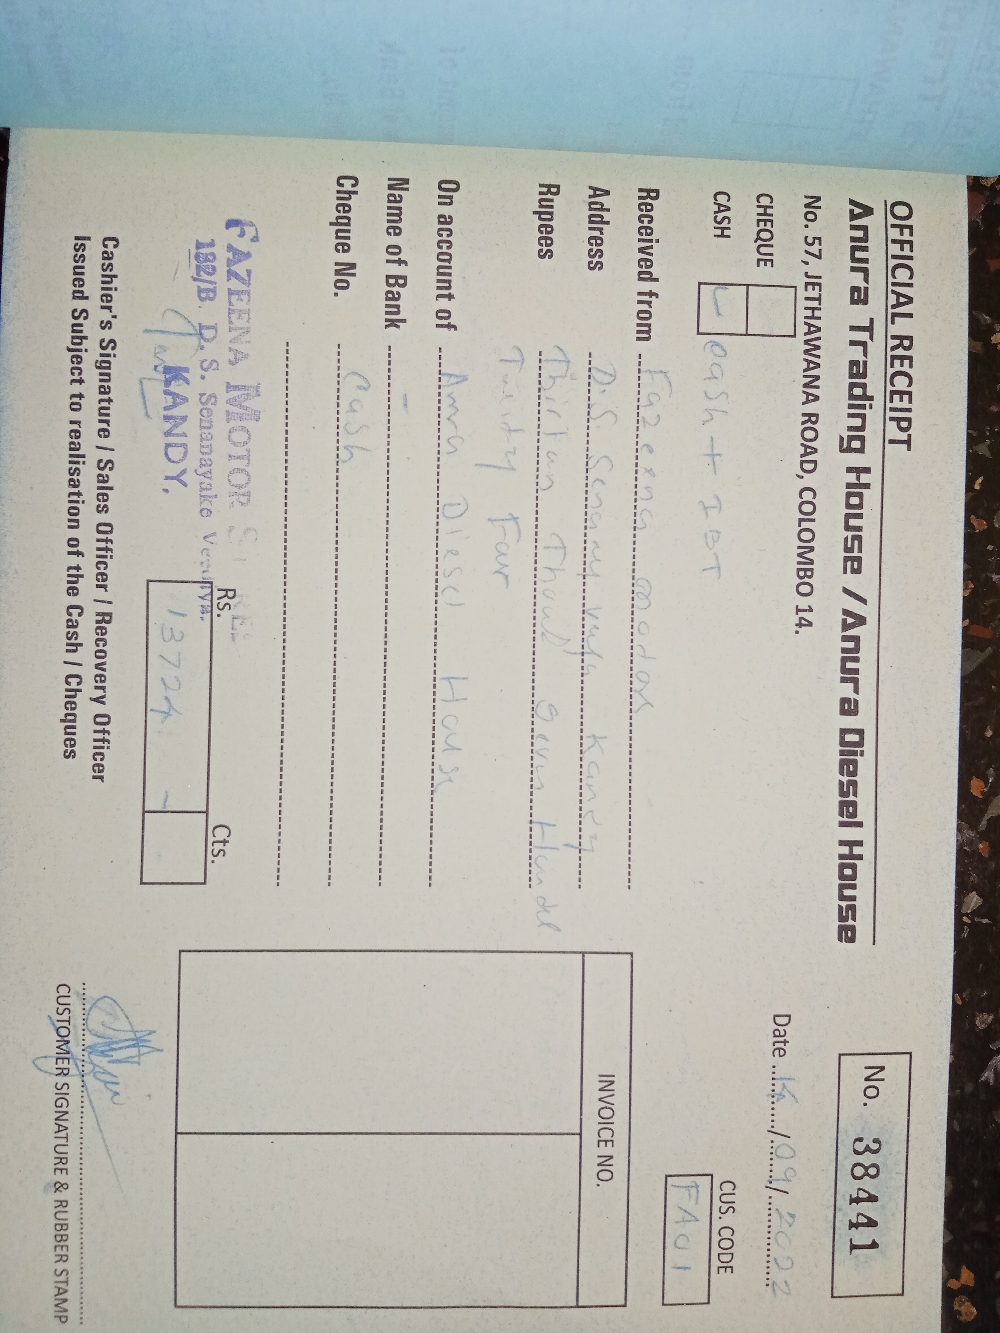 OFFICIAL RECEIPT
Anura Trading House / Anura Diesel House
No. 57, JETHAWANA ROAD, COLOMBO 14.
No. 38441
Date 14/09/2022
CHEQUE
CASH cash + IBT
CUS. CODE
FA01
Received from Fazeena motors
Address D.S. Senanayaka Kandy
Rupees Thirtun Thousd Sevun Hundel
Twnty Four
On account of Anura Diesel House
Name of Bank -
Cheque No. Cash
INVOICE NO.
FAZEENA MOTOR
182/B. D. S. Senanayake Veediya.
KANDY.
Rs. Cts.
13724 -
Cashier's Signature / Sales Officer / Recovery Officer
Issued Subject to realisation of the Cash / Cheques
CUSTOMER SIGNATURE & RUBBER STAMP